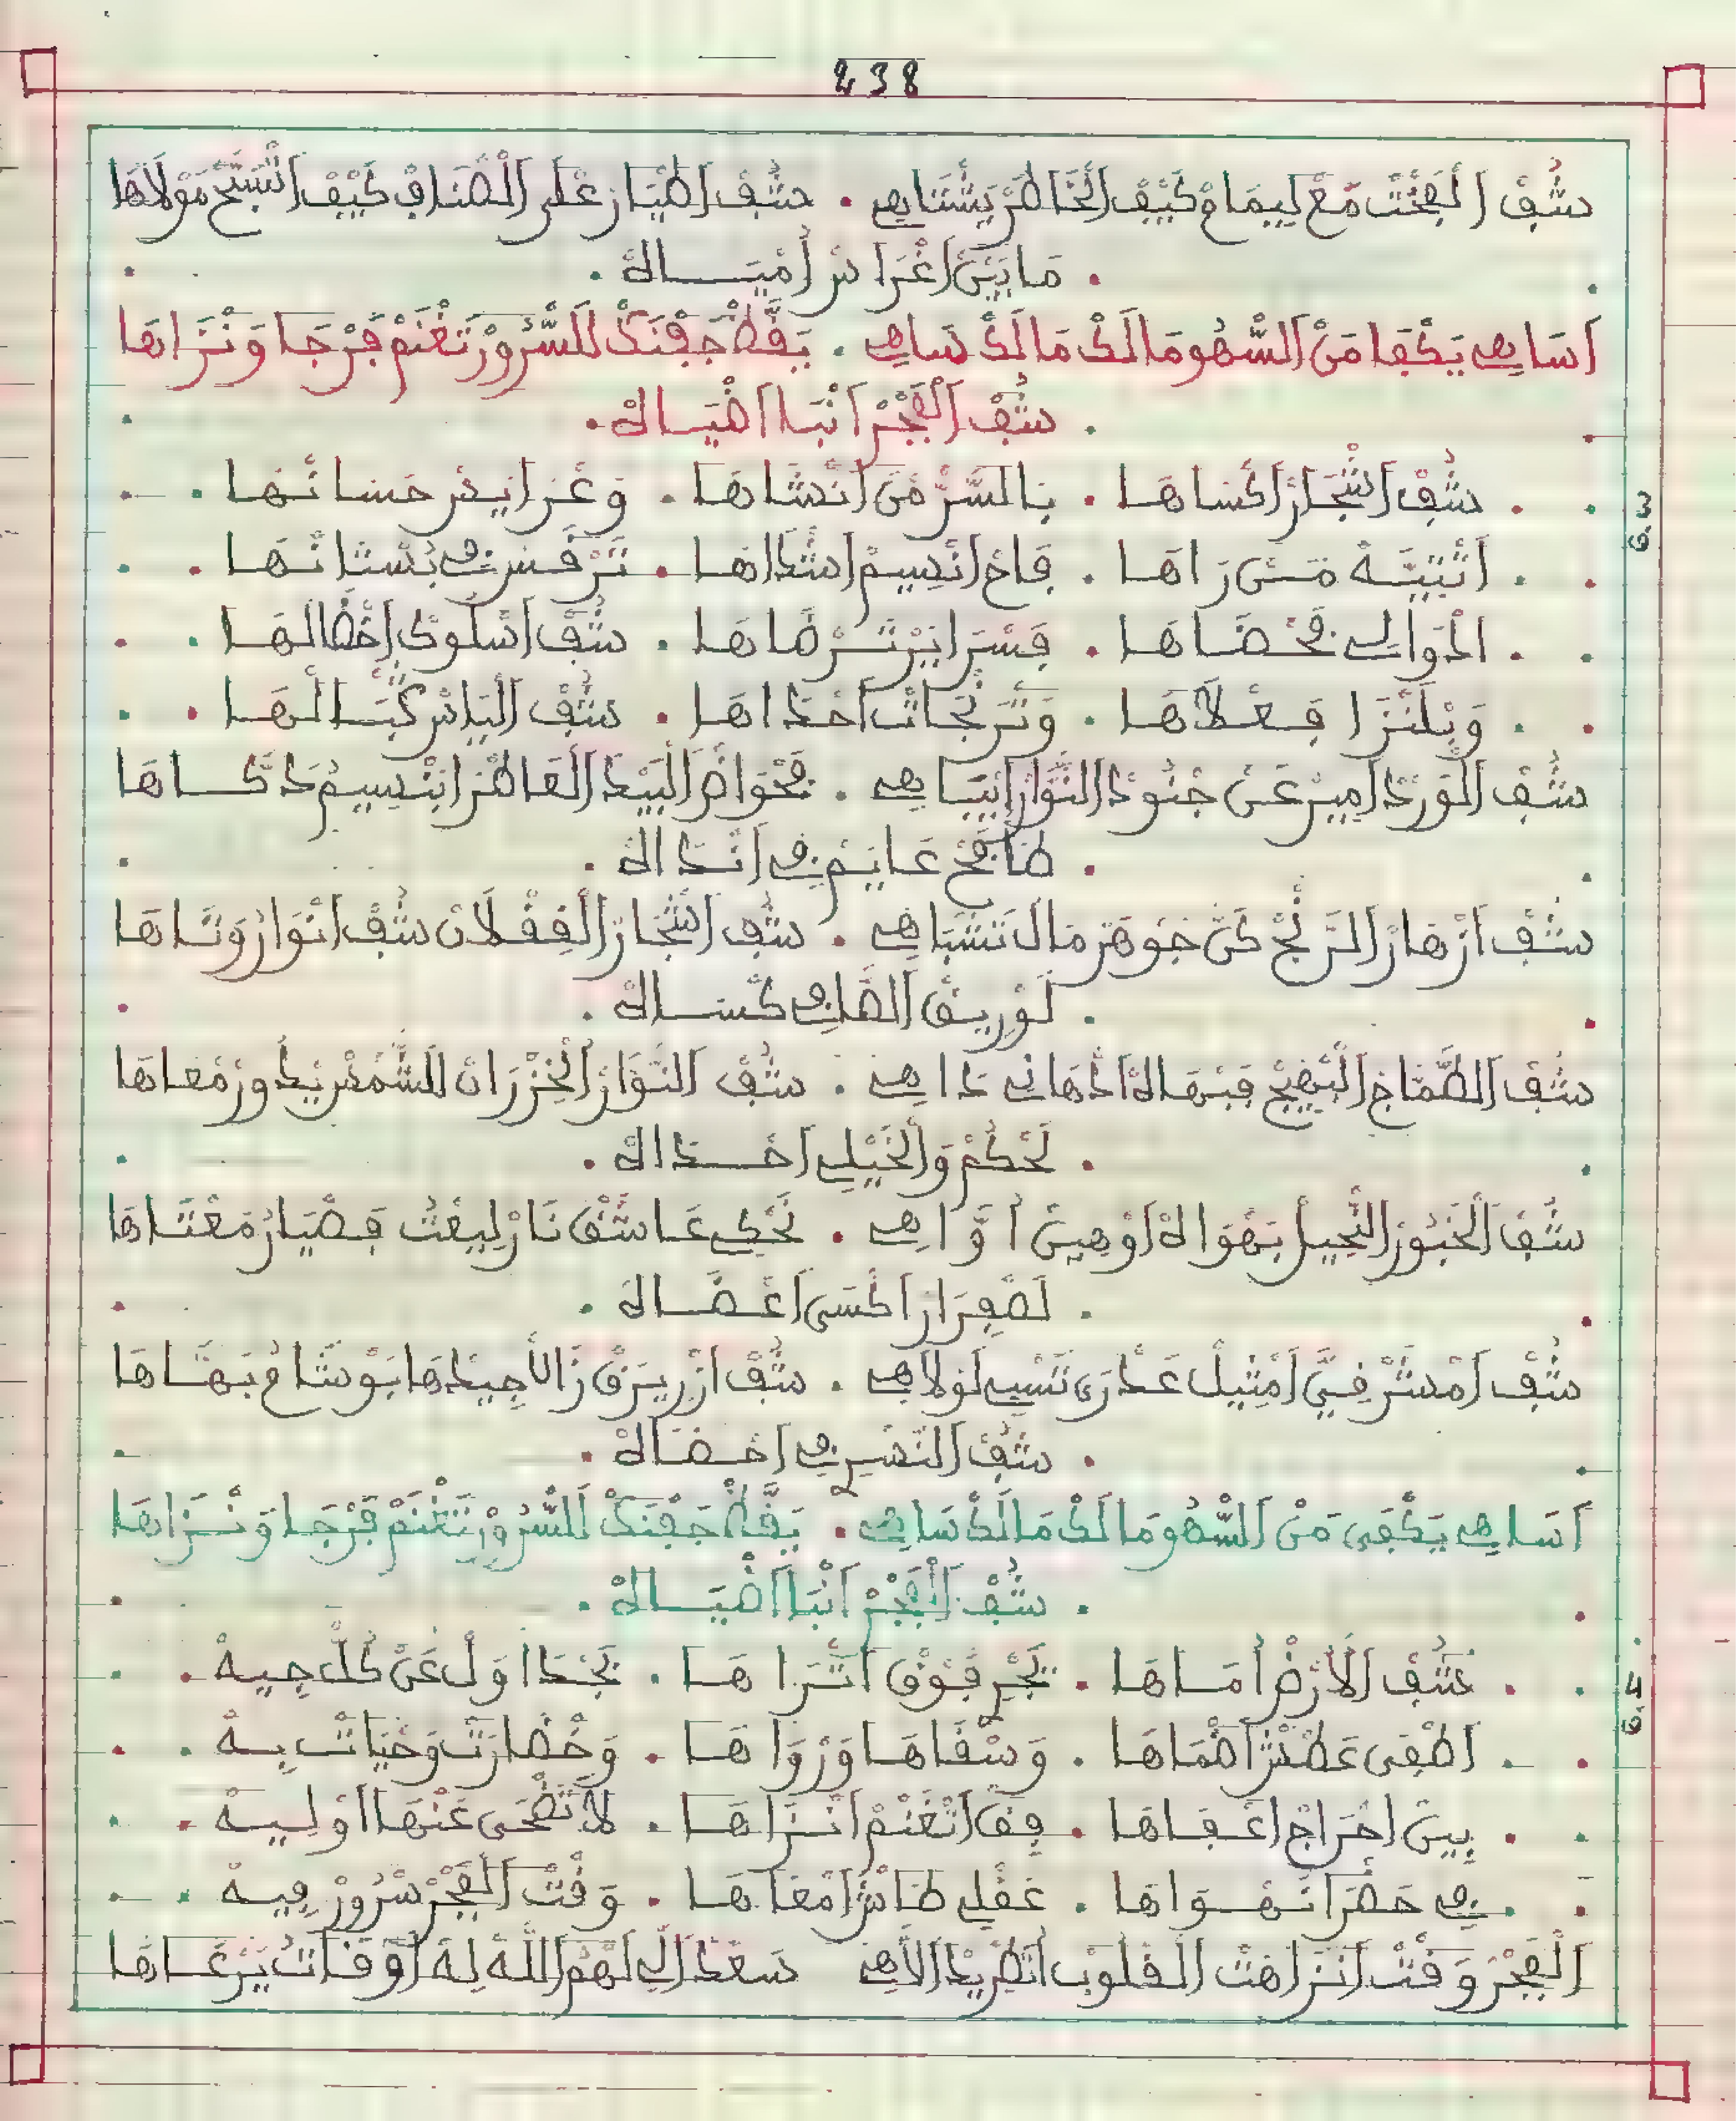 238
شُفْ الْفَخْتْ مْعَ لِيمَامْ كَيْفْ الْخَاطَرْ يَشْتَاهِي . شُفْ اطْيَارْ عْلَى الْصْنَافْ كَيْفْ اتْسَبَّحْ مَوْلَاهَا
. مَا بَيْنْ اغْرَاسْ أَمْيَاهْ .
اَسَاهِي يَكْفَا مَنْ السَّهُو مَا لَكْ مَا لَكْ سَاهِي . يَقَّظْ جَفْنَكْ لَلسُّرُورْ تَغْنَمْ فَرْجَا وَنْزَاهَا
. شُفْ الْفَجْرْ انْبَا اضْيَاهْ .
3
. شُفْ اشْجَارْ اكْسَاهَا . بَالسَّرْ مَنْ انْشَاهَا . وَعْرَايَسْ حَسَانْهَا .
ق.
. اَتْبَيَّتْهْ مَنْ رَاهَا . فَاحْ انْسِيمْ اشْدَاهَا . تَرْفَسْ فِي بُسْتَانْهَا .
. الدْوَالِي فَحْضَاهَا . فَسْرَايَرْ تَرْضَاهَا . شُفْ اسْلُوكْ اخْضَالْهَا .
. وَبْلَنْزَا فِعْلَاهَا . وَتَّرَنْجَاتْ احْدَاهَا . شُفْ الْيَاسْ كْبَالْهَا .
شُفْ الْوَرْدْ امِيرْ عَنْ جْنُودْ النُّوَّارْ ايْبَاهِي . فَحْوَاضْ الْبَيْدْ الْعَاطَرْ ابْنْسِيمْ دَكَّاهَا
. طَافَحْ عَايَمْ فِي انْدَاهْ .
شُفْ ازْهَارْ الرَّنْجْ كَنْ جَوْهَرْ مَالْ تَشْبَاهِي . شُفْ اشْجَارْ الْفِفْلَانْ شُفْ انْوَارْ وَتَاهَا
. لَوْرِيقْ الصَّافِي كْسَاهْ .
شُفْ الطُّمَّاجْ الْبْهِيجْ فَبْهَاهْ ادْهَانِي دَاهِي . شُفْ النُّوَّارْ الْخِزْرَانْ لَلشَّمْسْ يْدُورْ مْعَاهَا
. لَحْكُمْ وَالْخَيْلِي احْدَاهْ .
شُفْ الْخَبُّورْ النْحِيلْ بَهْوَاهْ اوْهِينْ اوَّاهِي . يَحْكِي عَاشَقْ نَارْ لِيعْتْ فَضْيَارْ مَعْتَاهَا
. لَصْفِرَارْ اكْسَى اعْضَاهْ .
شُفْ امْشَرْقِيَّ امْثِيلْ عَدْرَى تَسْبِي لَوْلَاهِي . شُفْ ازْرِيرَقْ زَالْ اجِيدْهَا بَوْشَامْ بَهَاهَا
. شُفْ النَّسْرِي فِي احْضَاهْ .
اَسَاهِي يَكْفَى مَنْ السَّهُو مَا لَكْ مَا لَكْ سَاهِي . يَقَّظْ جَفْنَكْ لَلسُّرُورْ تَغْنَمْ فَرْجَا وَنْزَاهَا
. شُفْ الْفَجْرْ انْبَا اضْيَاهْ .
4
. شُفْ الْأَرْضْ امَاهَا . يَجْرِي فَوْقْ اتْرَاهَا . يَجْدَاوَلْ عَنْ كُلّْ جِيهْ .
ق.
. اطْفَى عَطْشْ اظْمَاهَا . وَسْقَاهَا وَرْوَاهَا . وَخْضَارَتْ وَحْيَاتْ بِهْ .
. بِينْ احْرَاجْ اعْفَاهَا . فِقْ اتْغْنَمْ انْزَاهَا . لَا تَضْحَى عَنْهَا اوْلِيهْ .
. فِي حَضْرَا نَهْوَاهَا . عَقْلِي طَاشْ امْعَاهَا . وَقْتْ الْفَجْرْ سْرُورْ فِيهْ .
الْفَجْرْ وَقْتْ انْزَاهْتْ الْقْلُوبْ اتْطْرِيدْ الْاهِي سَعْدْ الِّي لَهُمْ اللَّهْ لِهْ اوْقَاتْ يَرْعَاهَا